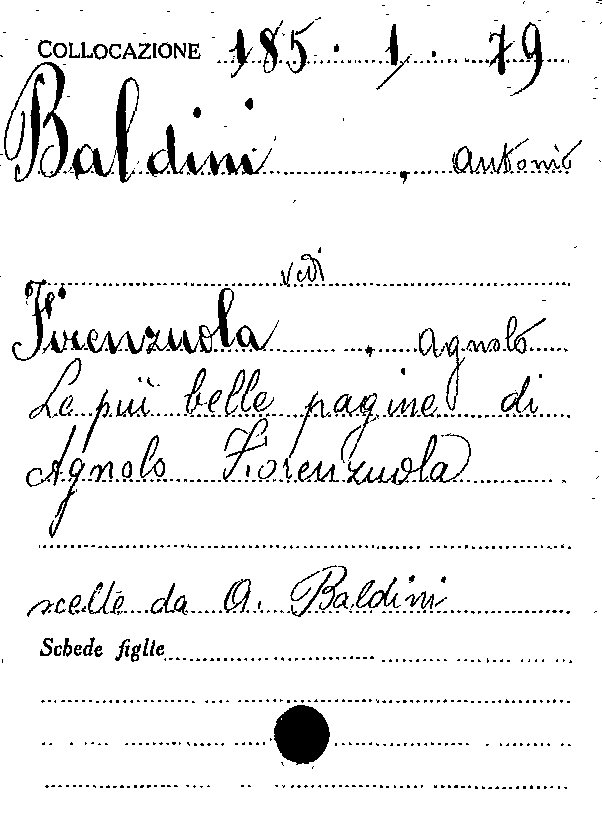 COLLOCAZIONE 185. 1. 79
Baldini, Antonio
vedi
Firenzuola, Agnolo
Le più belle pagine di
Agnolo Fiorenzuola
scelte da A. Baldini
Schede figlie